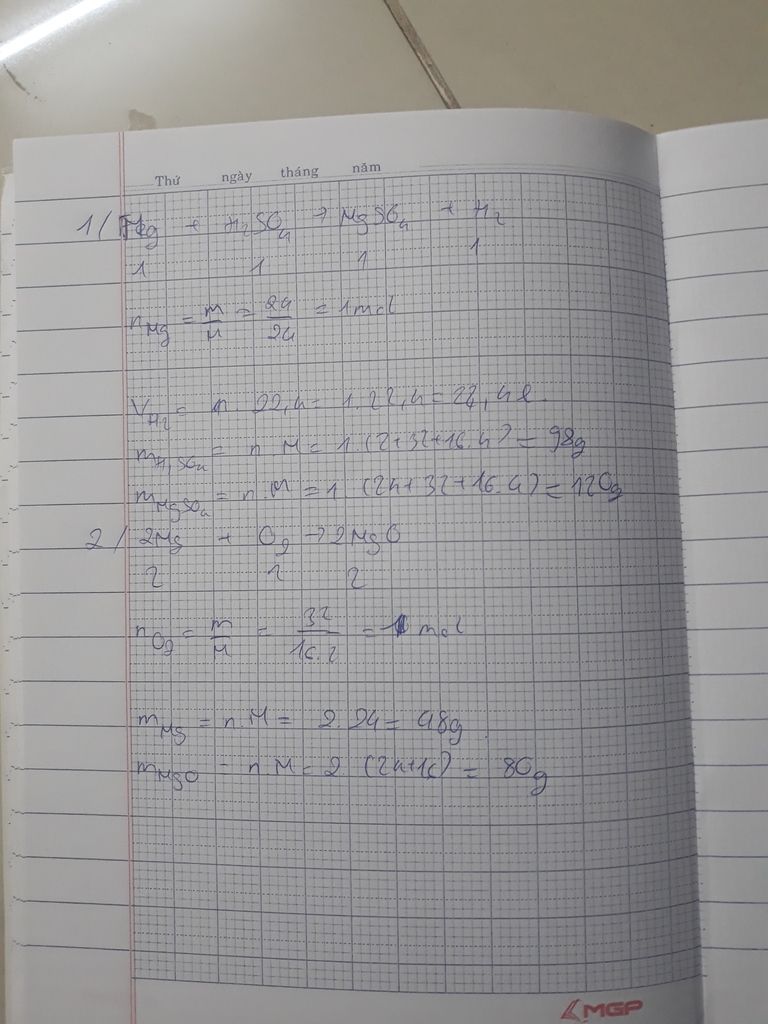 Thứ ngày tháng năm
1/ Mg + H₂SO₄ → MgSO₄ + H₂
1 1 1 1
n Mg = m/M = 24/24 = 1 mol
V H₂ = n. 22,4 = 1. 22,4 = 22,4 l.
m H₂SO₄ = n. M = 1. (2+32+16.4) = 98g
m MgSO₄ = n. M = 1. (24+32+16.4) = 120g
2/ 2Mg + O₂ → 2MgO
2 1 2
n O₂ = m/M = 32/16.2 = 1 mol
m Mg = n. M = 2. 24 = 48g
m MgO = n. M = 2 (24+16) = 80g
MGP